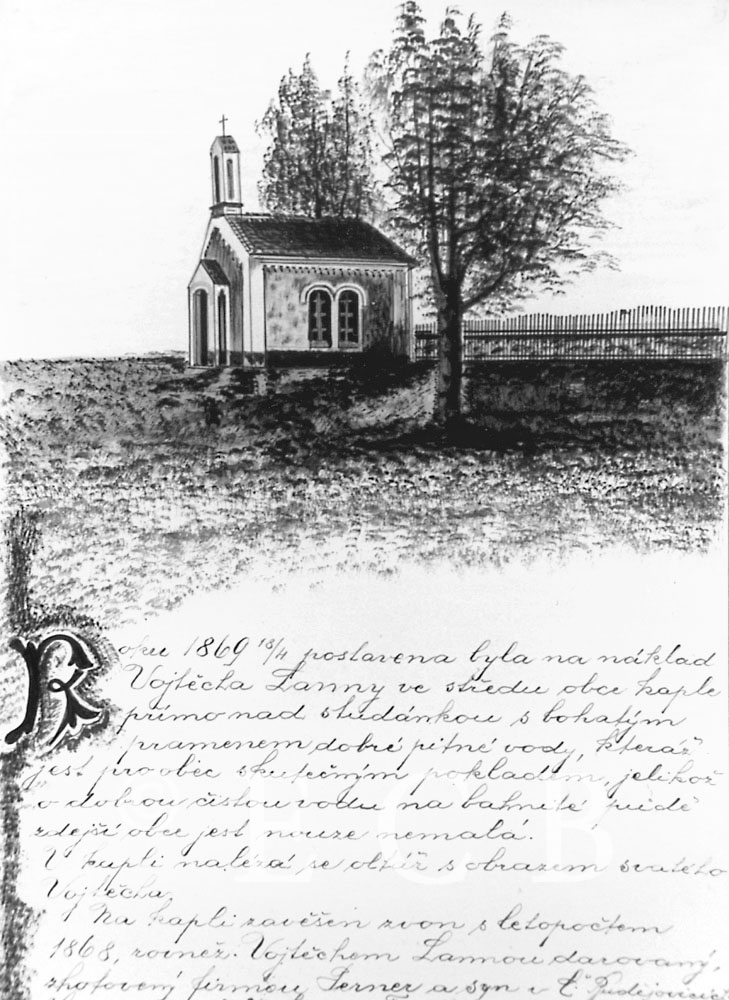 Roku 1869 18/4 postavena byla na náklad
Vojtěcha Lanny ve středu obce kaple
přímo nad studánkou s bohatým
pramenem dobré pitné vody, kteráž
jest pro obec skutečným pokladem, jelikož
o dobrou čistou vodu na bahnité půdě
zdejší obce jest nouze nemalá.
V kapli nalézá se oltář s obrazem svatého
Vojtěcha.
Na kapli zavěšen zvon s letopočtem
1868, rovněž Vojtěchem Lannou darovaný,
zhotovený firmou Perner a syn v Č. Budějovicích
© ECB